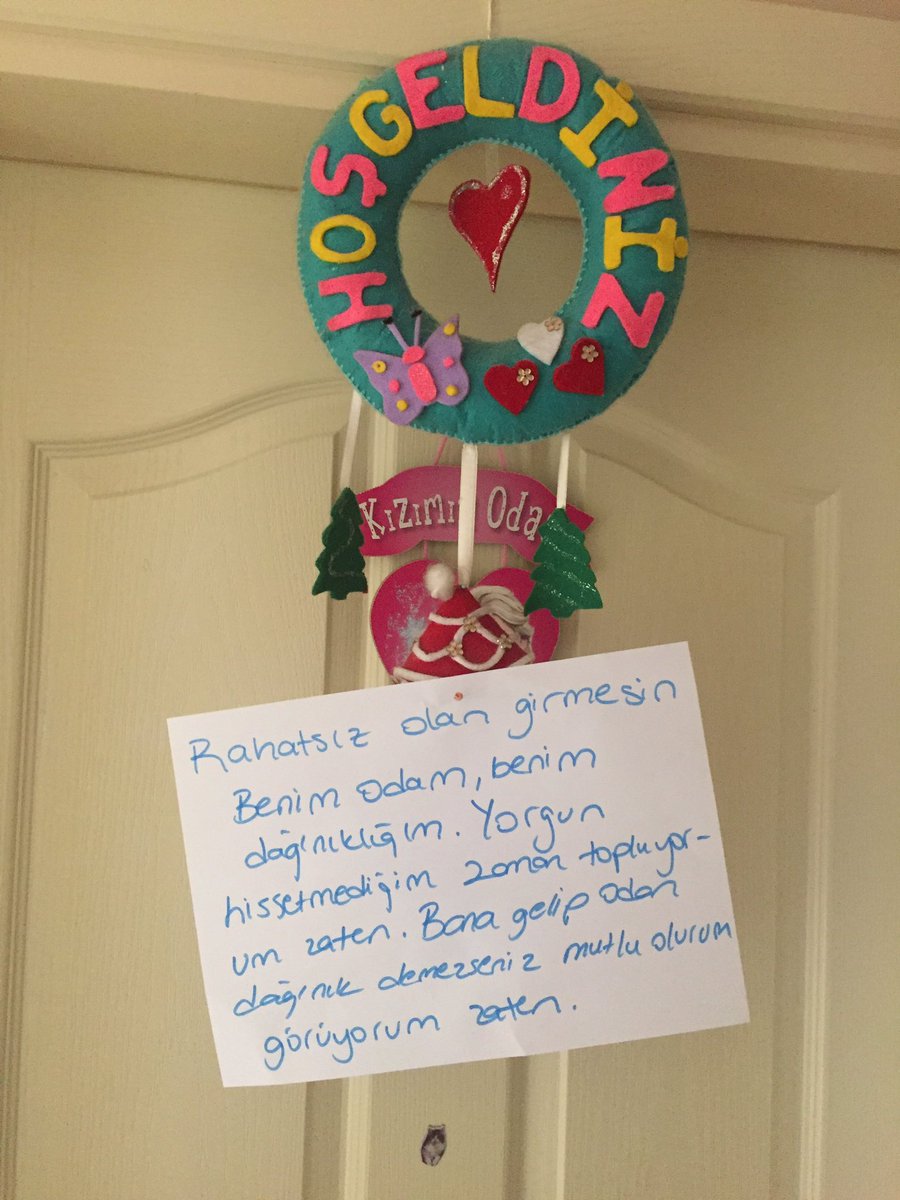 HOŞGELDİNİZ
Kızımın Oda
Rahatsız olan girmesin
Benim odam, benim
dağınıklığım. Yorgun
hissetmediğim zaman topluyor-
um zaten. Bana gelip odan
dağınık demezseniz mutlu olurum
görüyorum zaten.